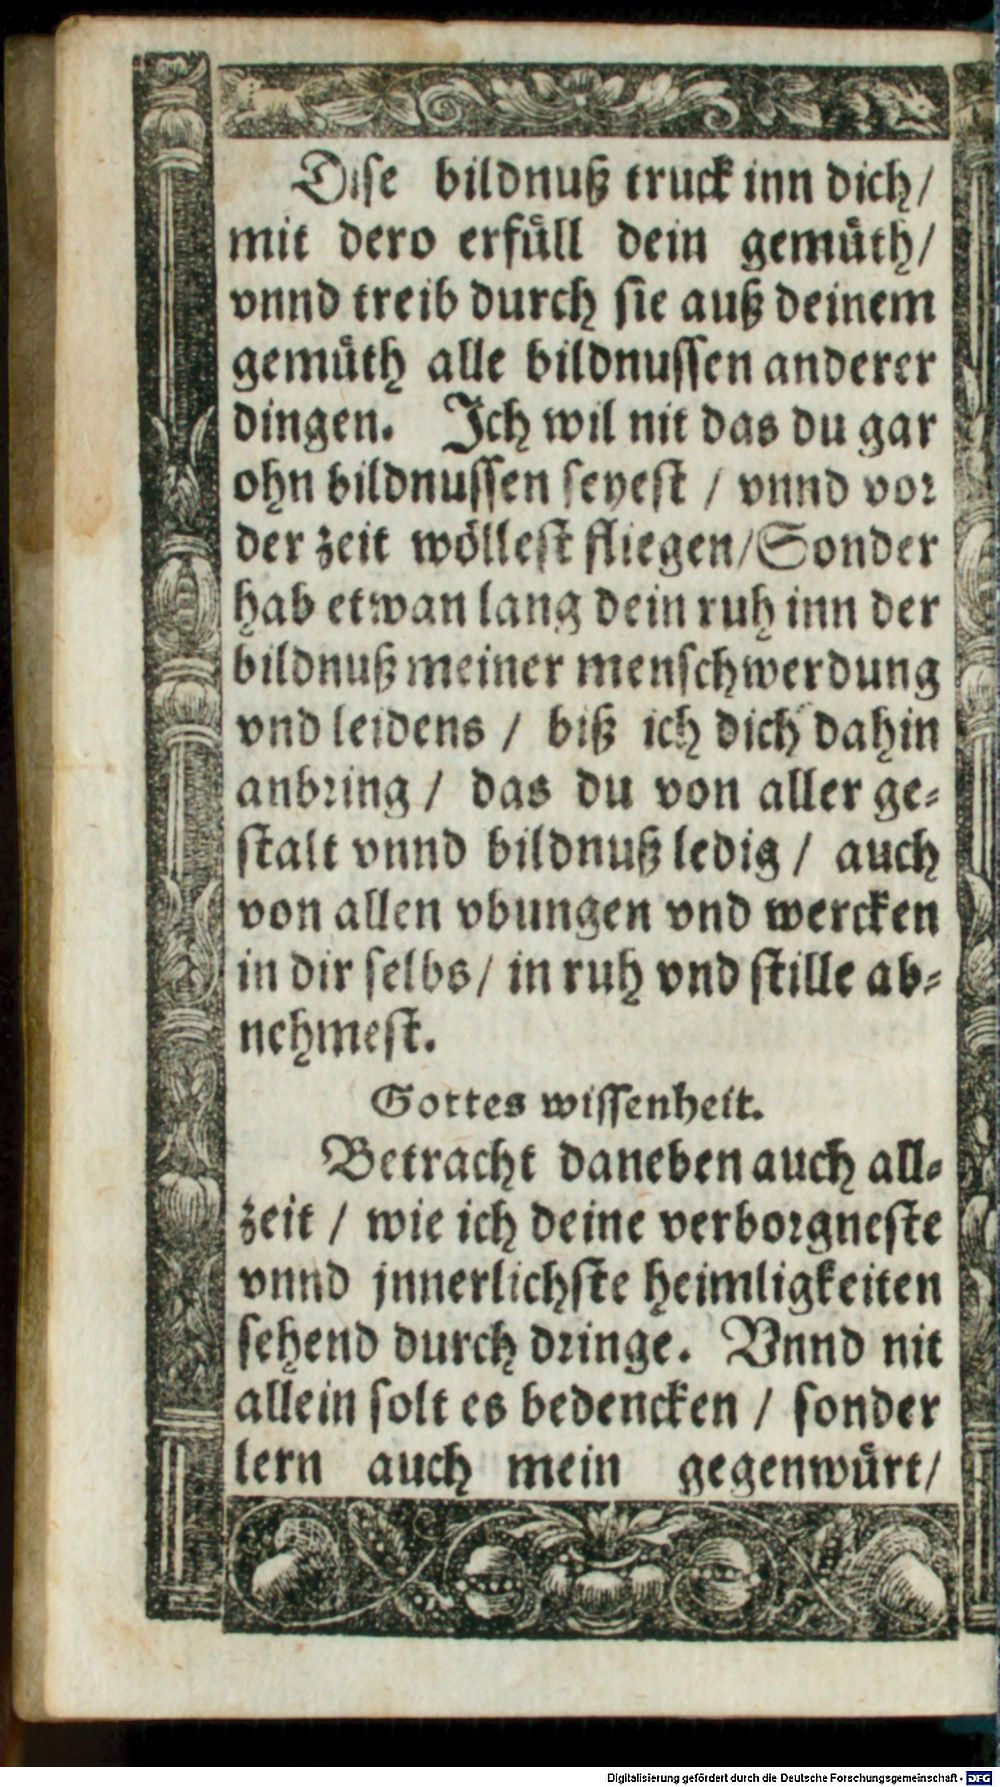 Dise bildnuß truck inn dich/
mit dero erfüll dein gemüth/
vnnd treib durch sie auß deinem
gemüth alle bildnussen anderer
dingen. Ich wil nit das du gar
ohn bildnussen seyest / vnnd vor
der zeit wöllest fliegen/Sonder
hab etwan lang dein ruh inn der
bildnuß meiner menschwerdung
vnd leidens / biß ich dich dahin
anbring / das du von aller ge-
stalt vnnd bildnuß ledig / auch
von allen vbungen vnd wercken
in dir selbs/ in ruh vnd stille ab-
nehmest.
Gottes wissenheit.
Betracht daneben auch all-
zeit / wie ich deine verborgneste
vnnd jnnerlichste heimligkeiten
sehend durch dringe. Vnnd nit
allein solt es bedencken / sonder
lern auch mein gegenwürt/
Digitalisierung gefördert durch die Deutsche Forschungsgemeinschaft - DFG